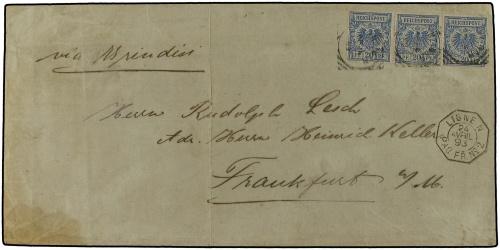 REICHSPOST REICHSPOST REICHSPOST
via Brindisi
Herrn Rudolph Lesch
Adr. Herrn Heinrich Keller
Frankfurt a/M.
LIGNE N
24
AVRIL
93
PAQ. FR. Nº 2